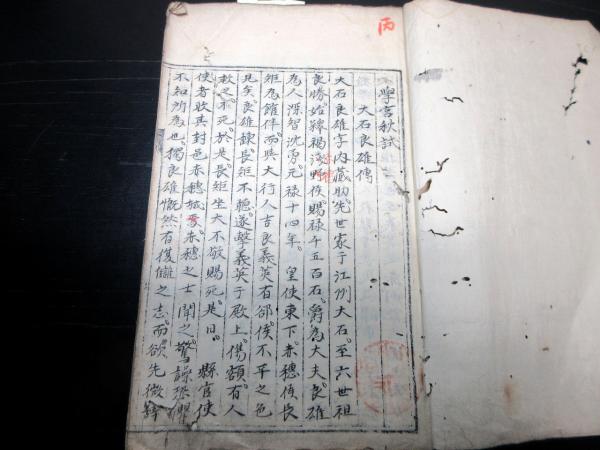 丙
學宮秋試
大石良雄傳
大石良雄字内藏助先世家于江州大石至六世祖
良勝始釋褐淺野侯賜禄千五百石爵為大夫良雄
為人深智沈勇元禄十四年 皇使東下赤穗侯長
矩為館伴而與大行人吉良義英有郤侯不平之色
見矣良雄諫長矩不聽遂擊義英于殿上傷額有人
救之不死於是長矩坐大不敬賜死是日 縣官使
使者收其封邑赤穗城焉赤穗之士聞之驚譟恐懼
不知所為也獨良雄慨然有復讎之志而欲先微